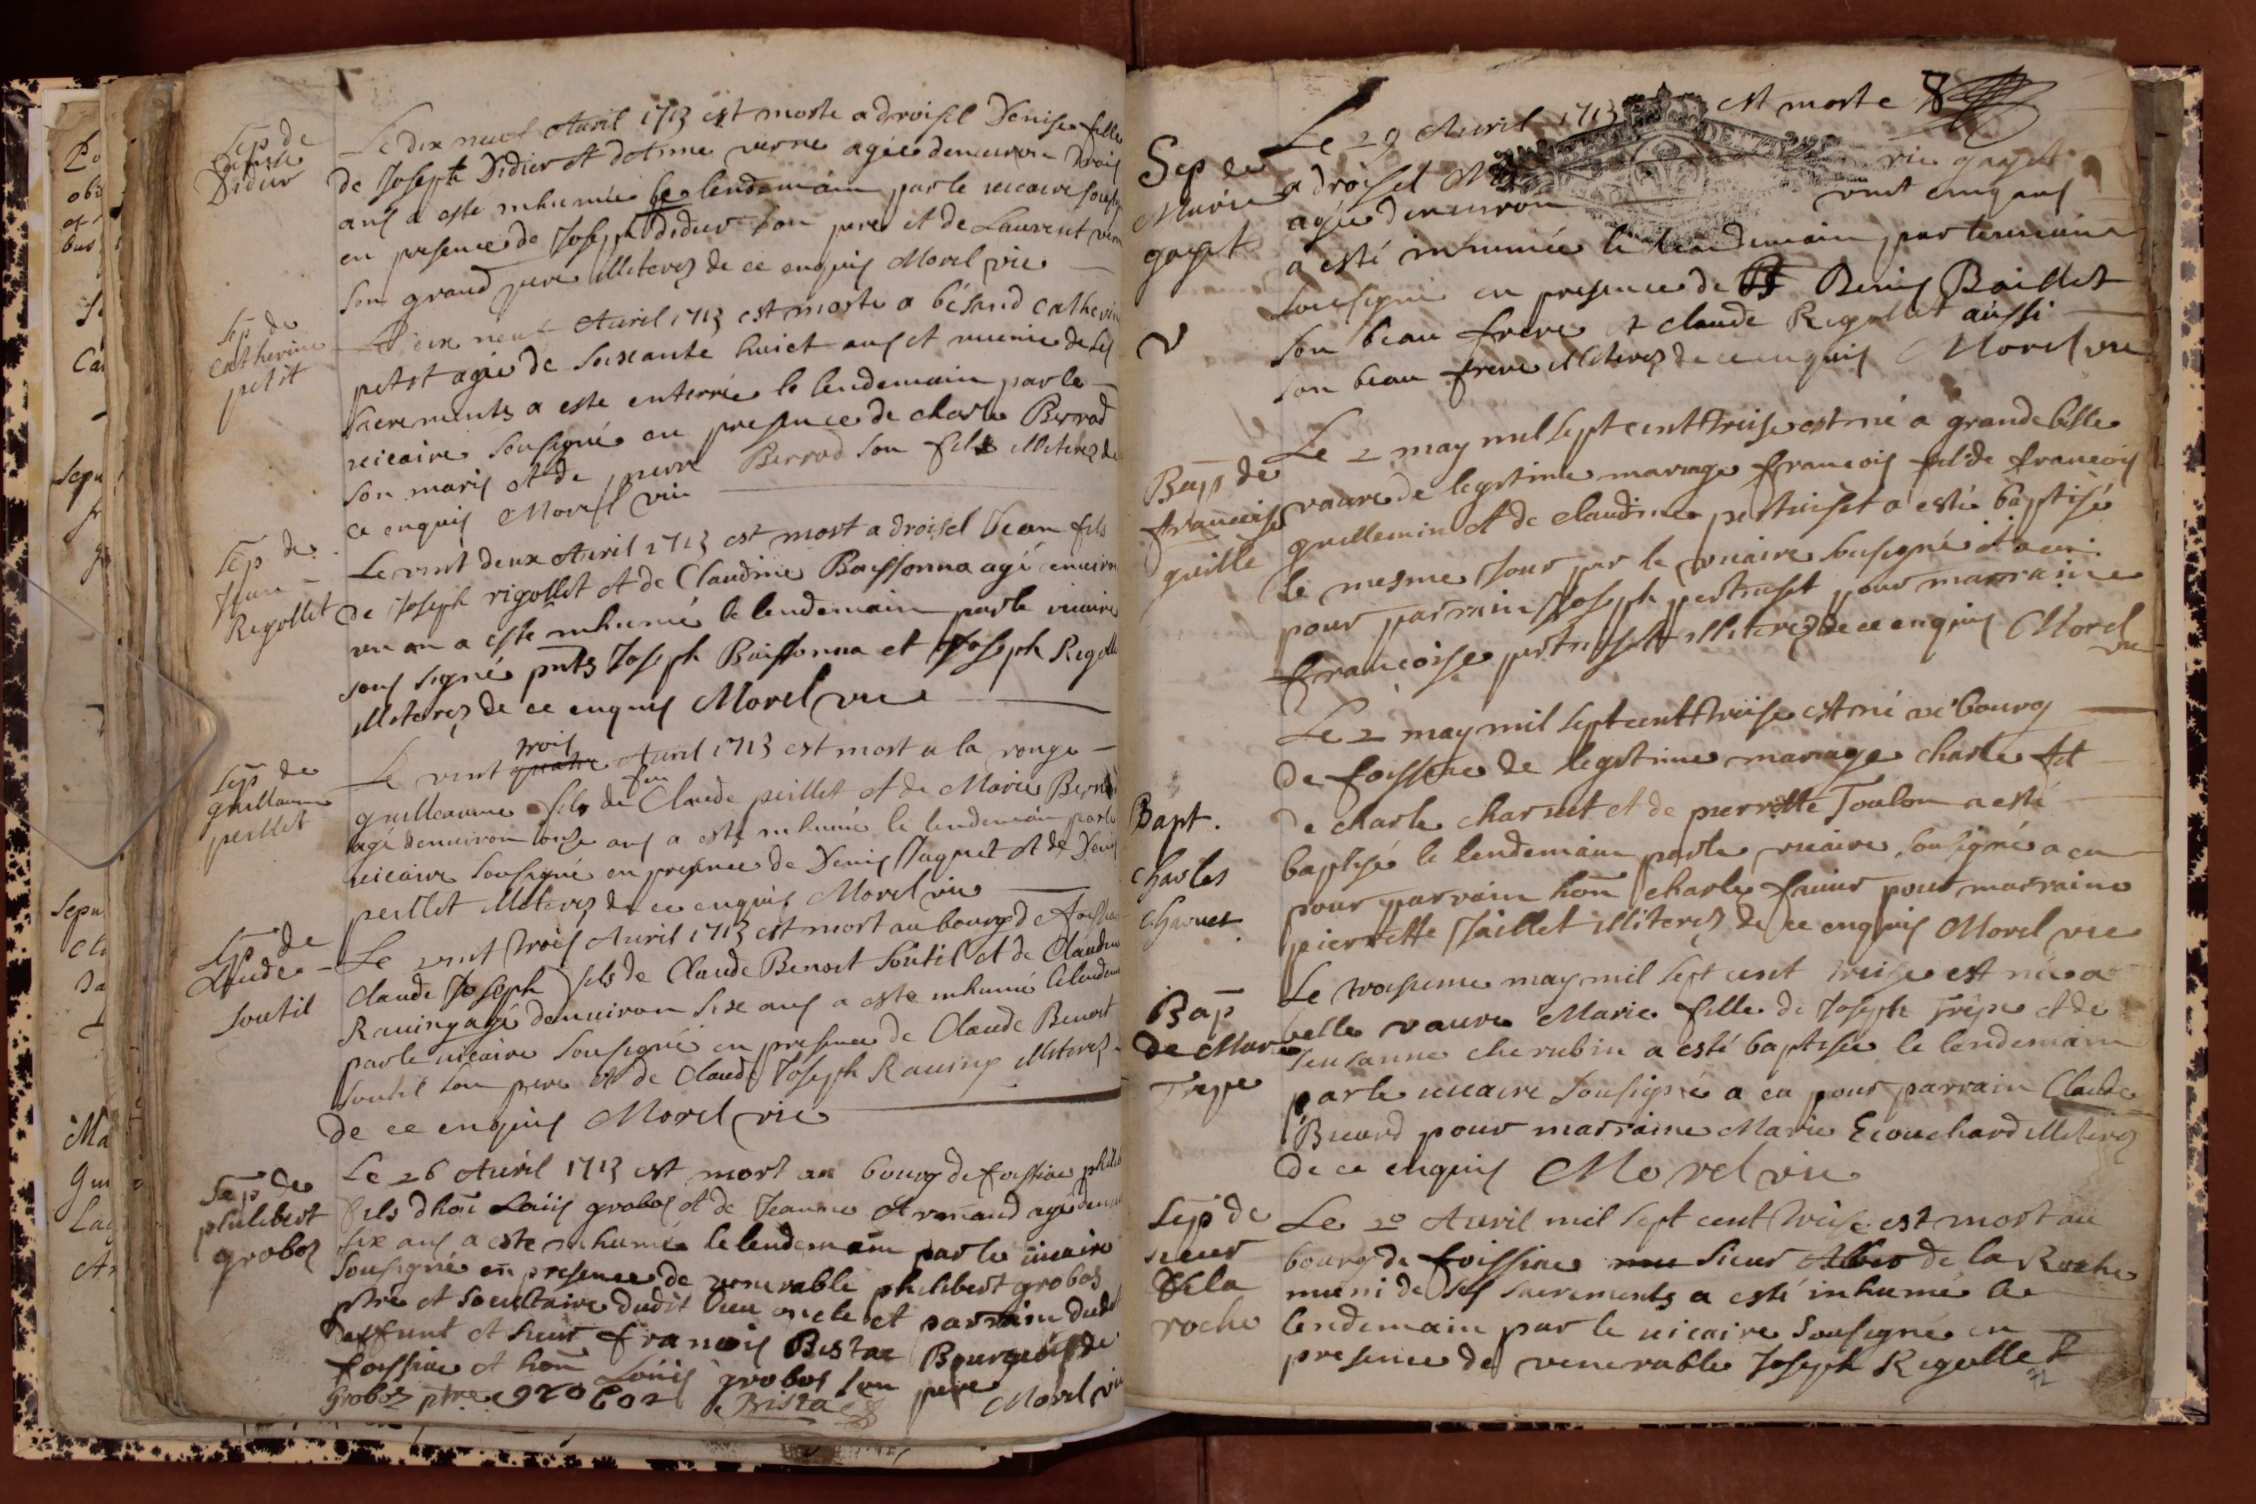 Sep de
Denise
Didier
Le dix neuf Avril 1713 est morte a droisel Denise fille
de Joseph Didier et detinne verne agée denviron trois
ans a este inhumée le lendemain par le vicaire
en presence de Joseph Didier son pere et de Laurent
son grand pere illiterez de ce enquis Morel vic
Sep de
Catherine
petit
Le dix neuf Avril 1713 est morte a bésand Catherine
petit agée de soixante huict ans et munie de ses
sacrements a este enterrée le lendemain par le
vicaire sousigné en presence de charle Berrod
son maris et de pierre Berrod son fils illiterez de
ce enquis Morel vic
Sep de
Jean
Regollet
Le vint deux Avril 1713 est mort a droisel Jean fils
de Joseph rigollet et de Claudine Boissonna agé environ
un an a este inhumé le lendemain par le vicaire
sous signé pnts Joseph Boissonna et Joseph
illiterez de ce enquis Morel vic
Sep de
guillaume
peillet
trois
Le vint quatre Avril 1713 est mort a la ronge
feu
guilleaume fils de Claude peillet et de Marie
agé denviron onze ans a este inhumé le lendemain par le
vicaire sousigné en presence de Denis Jaquet et de Denis
peillet illiterez de ce enquis Morel vic
Sep de
Claude
soutil
Le vint trois Avril 1713 est mort au bourg de
Claude Joseph fils de Claude Benoit Soutil et de Claudine
Rauing agé denviron sixe ans a este inhumé
par le vicaire sousigné en presence de Claude Benoit
soutil son pere et de Claude Joseph Rauing illiterez
de ce enquis Morel vic
Sep de
philibert
groboz
Le 26 Avril 1713 est mort au bourg de foissiae
fils dhon Louis groboz et de Jeanne Armand agé
six ans a este inhumé le lendemain par le vicaire
sousigné en presence de venerable philibert groboz
ptre et societaire dudit lieu oncle et parrain dudit
deffunt et sieur francois Bistac Bourgeois de
foissiae et hon Louis groboz son pere
Groboz ptre groboz Bista Morel
8
Sep de
Marie
gayet
V
Le 29 Avril 1713 est morte
a droisel Ma rie gayet
agée denviron vint cinq ans
a esté inhumée le lendemain par le vicaire
sousigné en presence de Denis Baillet
son beau frere et claude Regollet aussi
son beau frere illiterez de ce enquis Morel vic
Bap de
francois
guille
Le 2 may mil sept cent treise est né a grande belle
vaure de legitime mariage francois fil de francois
guillemin et de claudine pertuiset a esté baptisé
le mesme jour par le vicaire sousigné a eu
pour parrain Joseph pertuiset pour marraine
francoise pertuiset illiterez de ce enquis Morel
vic
Bapt.
Charles
Charnet
Le 2 may mil sept cent treise est né au bourg
de foissiae de legitime mariage charle fil
de charle charnet et de pierrette Toulon a esté
baptisé le lendemain par le vicaire sousigné a eu
pour parrain hon charle pour marraine
pierrette Jaillet illiterez de ce enquis Morel vic
Bap
de Marie
Trepe
Le troisieme may mil sept cent treise est née a
belle vaure Marie fille de Joseph Trepe et de
Susanne cherubin a esté baptisée le lendemain
par le vicaire sousigné a eu pour parrain Claude
Buard pour marraine Marie Ecouchard illiterez
de ce enquis Morel vic
Sep de
sieur
Dela
roche
Le 20 Avril mil sept cent treise est mort au
bourg de foissiae sieur de la Roche
muni de ses sacrements a esté inhumé le
lendemain par le vicaire sousigné en
presence de venerable Joseph Regollet